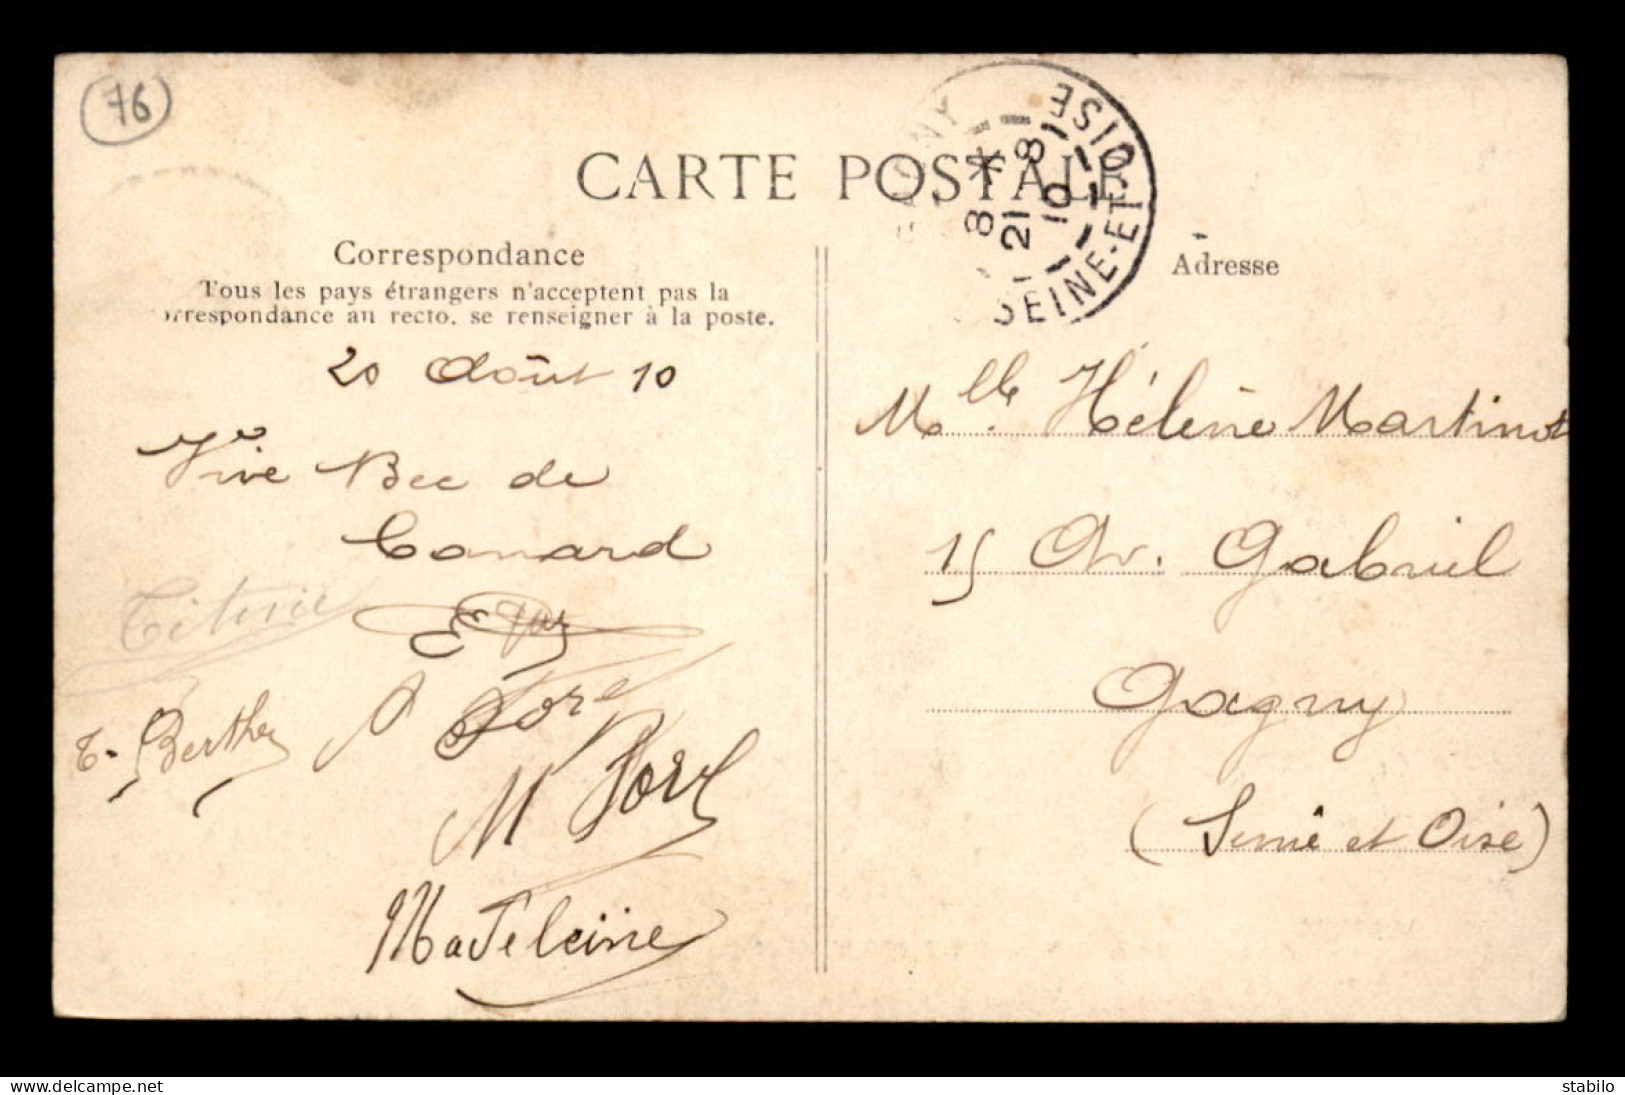 76
CARTE POSTALE
GAGNY
SEINE-ET-OISE
8 *
21 8
10
Correspondance
Tous les pays étrangers n'acceptent pas la
correspondance au recto. se renseigner à la poste.
Adresse
20 Août 10
Vive Bec de
Canard
Titine
T. Berthe
Madeleine
Mlle. Hélène Martinot
15 Av. Gabriel
Gagny
(Seine et Oise)
delcampe.net
stabilo